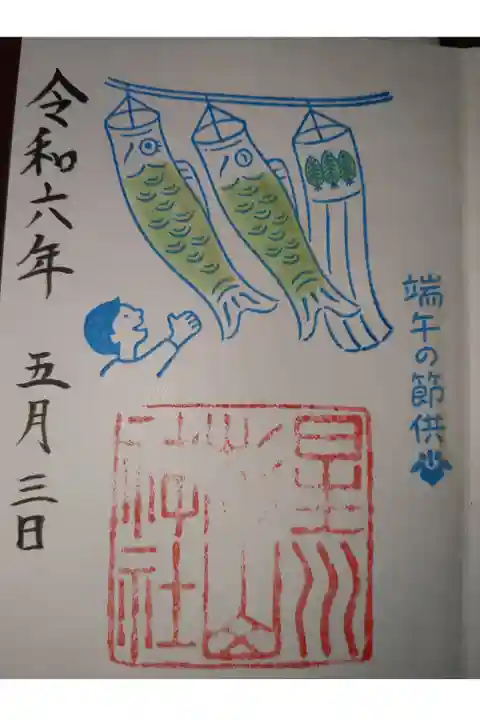 端午の節供
令和六年 五月三日
星川
杉山
神社